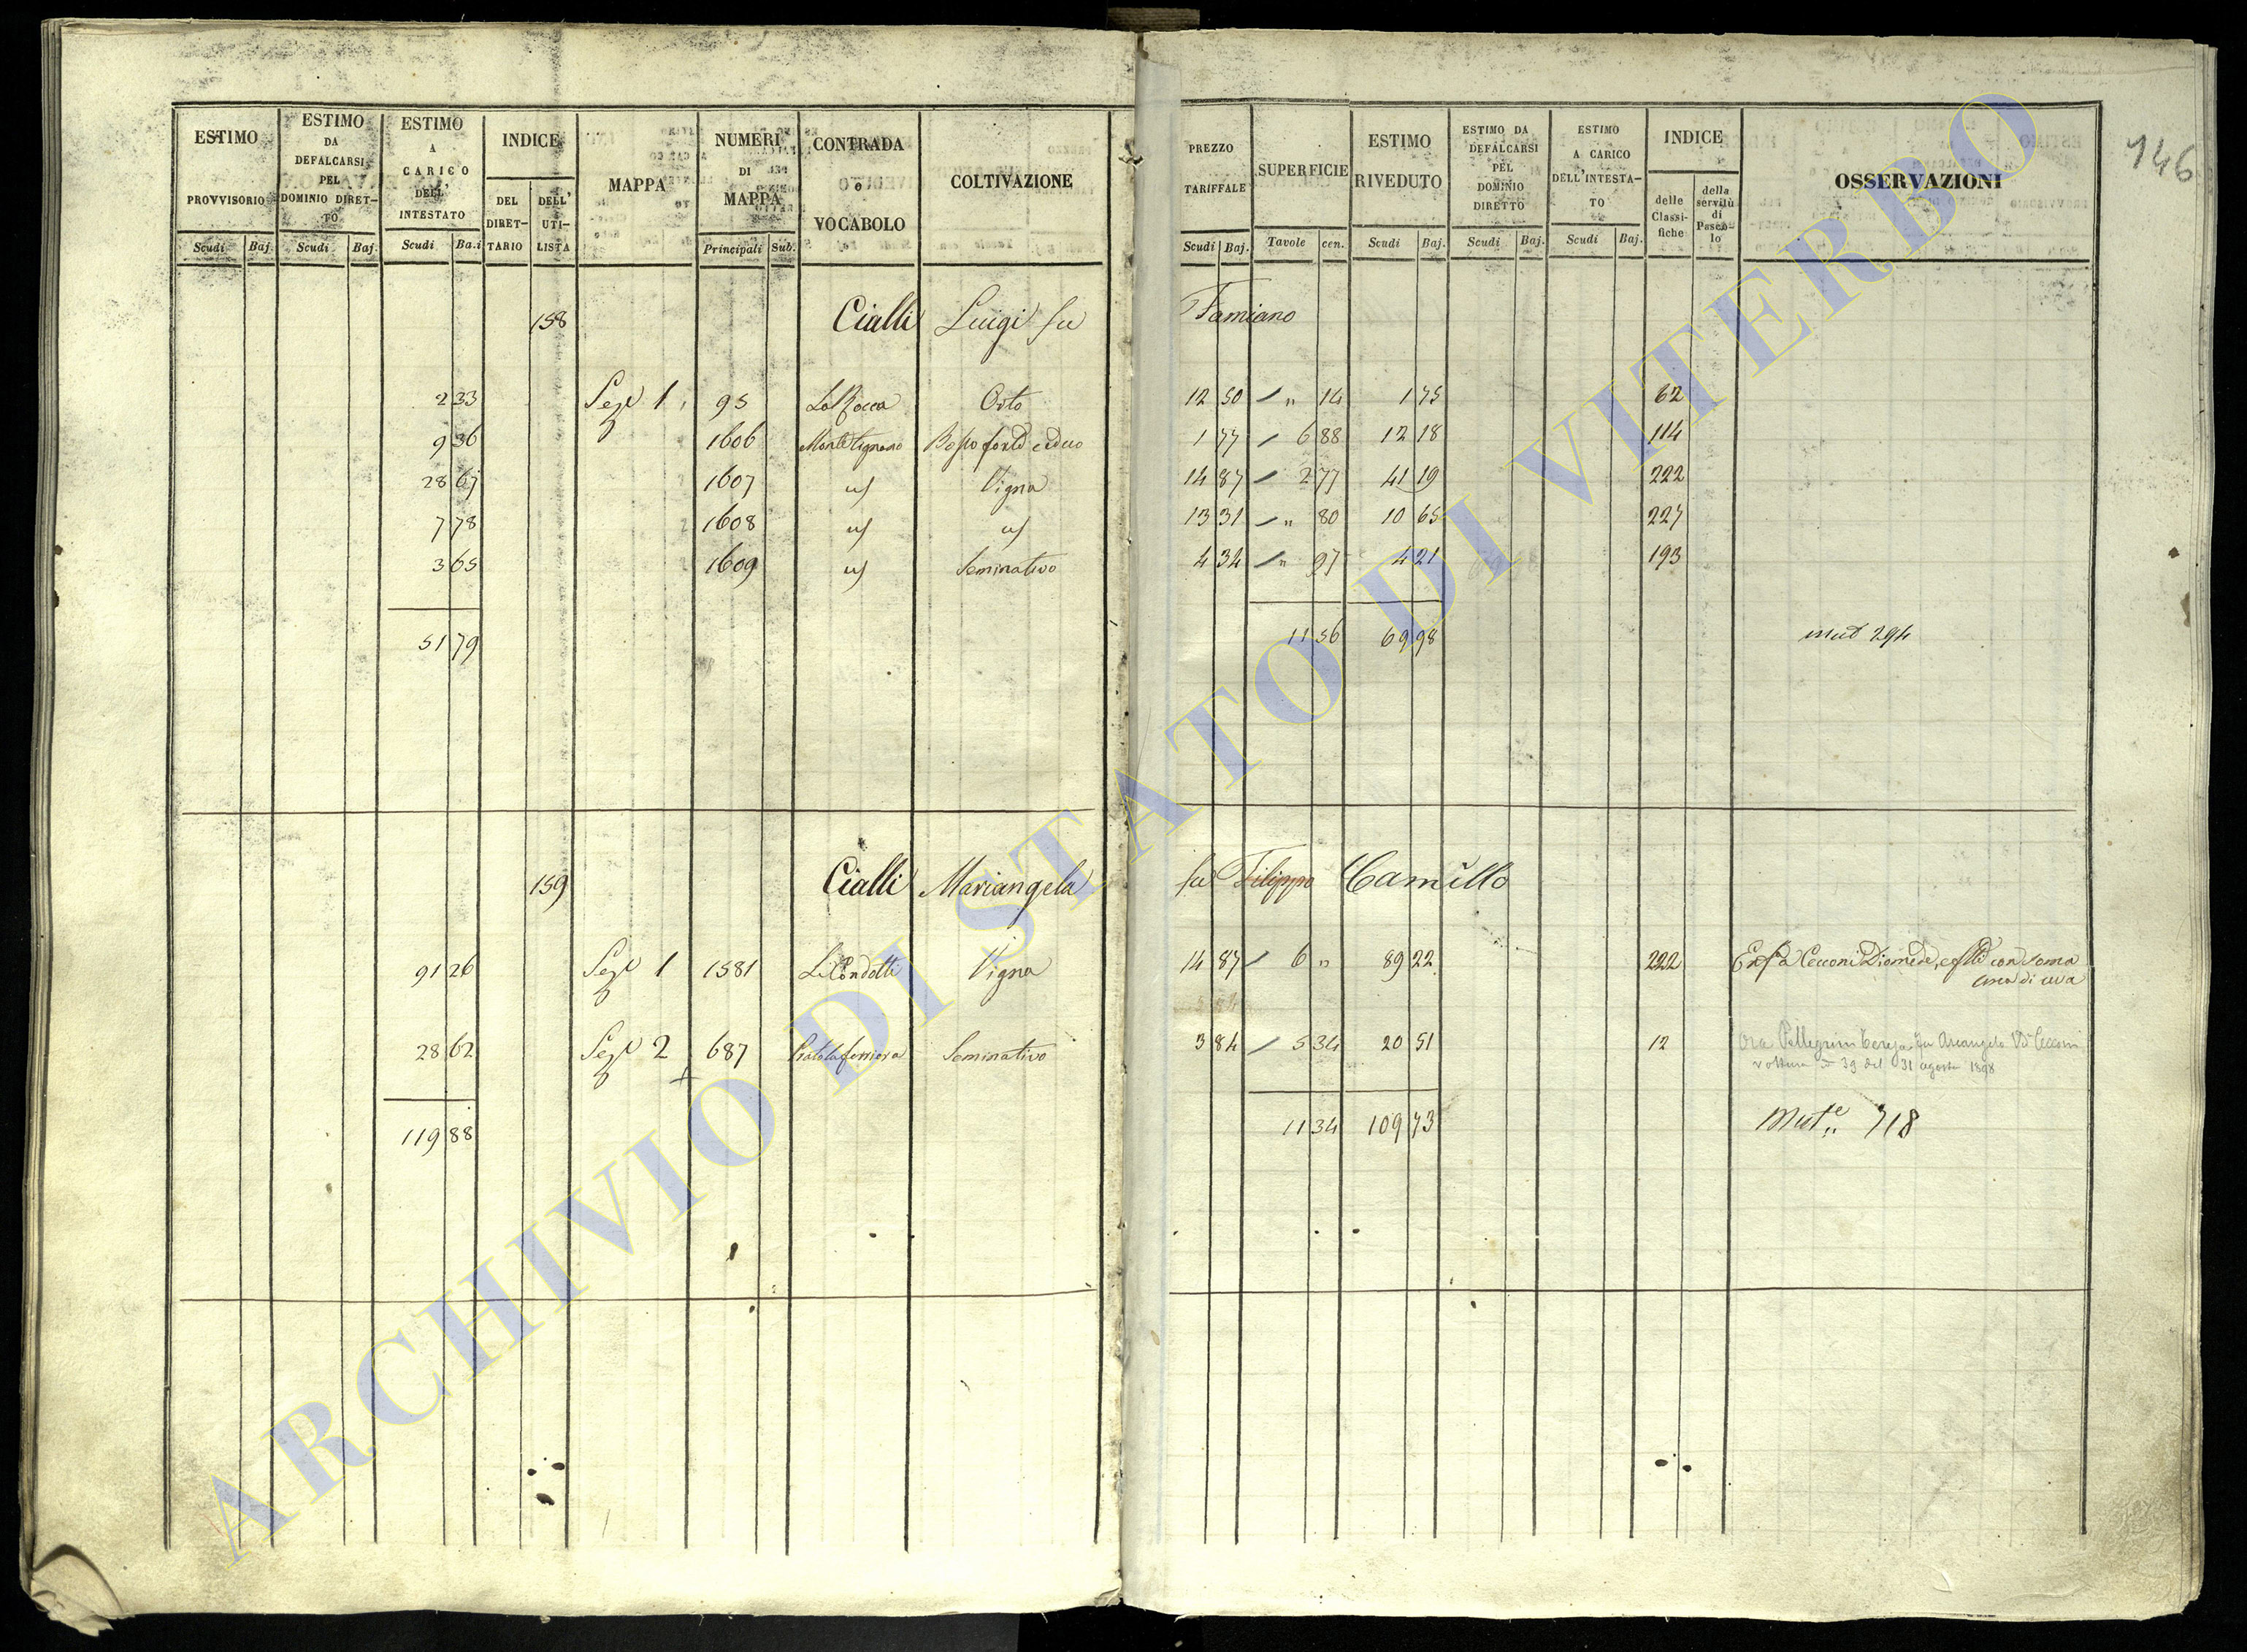 146
ESTIMO PROVVISORIO Scudi Baj.
ESTIMO DA DEFALCARSI PEL DOMINIO DIRETTO Scudi Baj.
ESTIMO A CARICO DELL' INTESTATO Scudi Ba.i
INDICE DEL DIRETTARIO DELL' UTILISTA
MAPPA
NUMERI DI MAPPA Principali Sub.
CONTRADA o VOCABOLO
COLTIVAZIONE
PREZZO TARIFFALE Scudi Baj.
SUPERFICIE Tavole cen.
ESTIMO RIVEDUTO Scudi Baj.
ESTIMO DA DEFALCARSI PEL DOMINIO DIRETTO Scudi Baj.
ESTIMO A CARICO DELL'INTESTATO Scudi Baj.
INDICE delle Classifiche della servitù di Pascolo
OSSERVAZIONI
158 Cialli Luigi fu Famiano
2 33 Sez 1 95 La Rocca Orto 12 50 " 14 1 75 62
9 36 1606 Monte Lignano forte ceduo 1 77 6 88 12 18 114
28 67 1607 " Vigna 14 87 2 77 41 19 222
7 78 1608 " " 13 31 " 80 10 65 227
3 65 1609 " Seminativo 4 34 " 97 4 21 193
51 79 11 56 69 98 mut 294
159 Cialli Mariangela fu Filippo Camillo
91 26 Sez 1 1581 Li Condotti Vigna 14 87 6 " 89 22 222 Enf a Cecconi Diomede, con soma
una di uva
28 62 Sez 2 687 Seminativo 3 84 5 34 20 51 12 ora Pellegrini Teresa fu Arcangelo Va Cecconi
voltura n 39 del 31 agosto 1898
119 88 11 34 109 73 Mute 718
ARCHIVIO DI STATO DI VITERBO